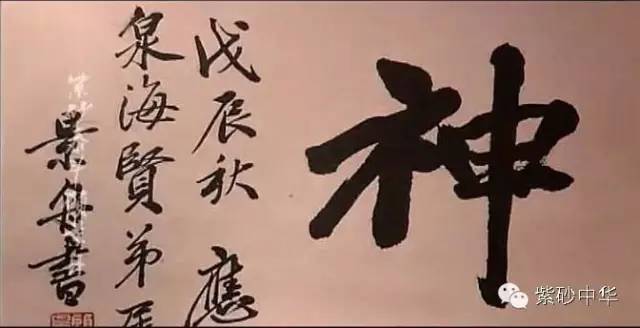 神
戊辰秋 應
泉海賢弟
景舟書
紫砂中华